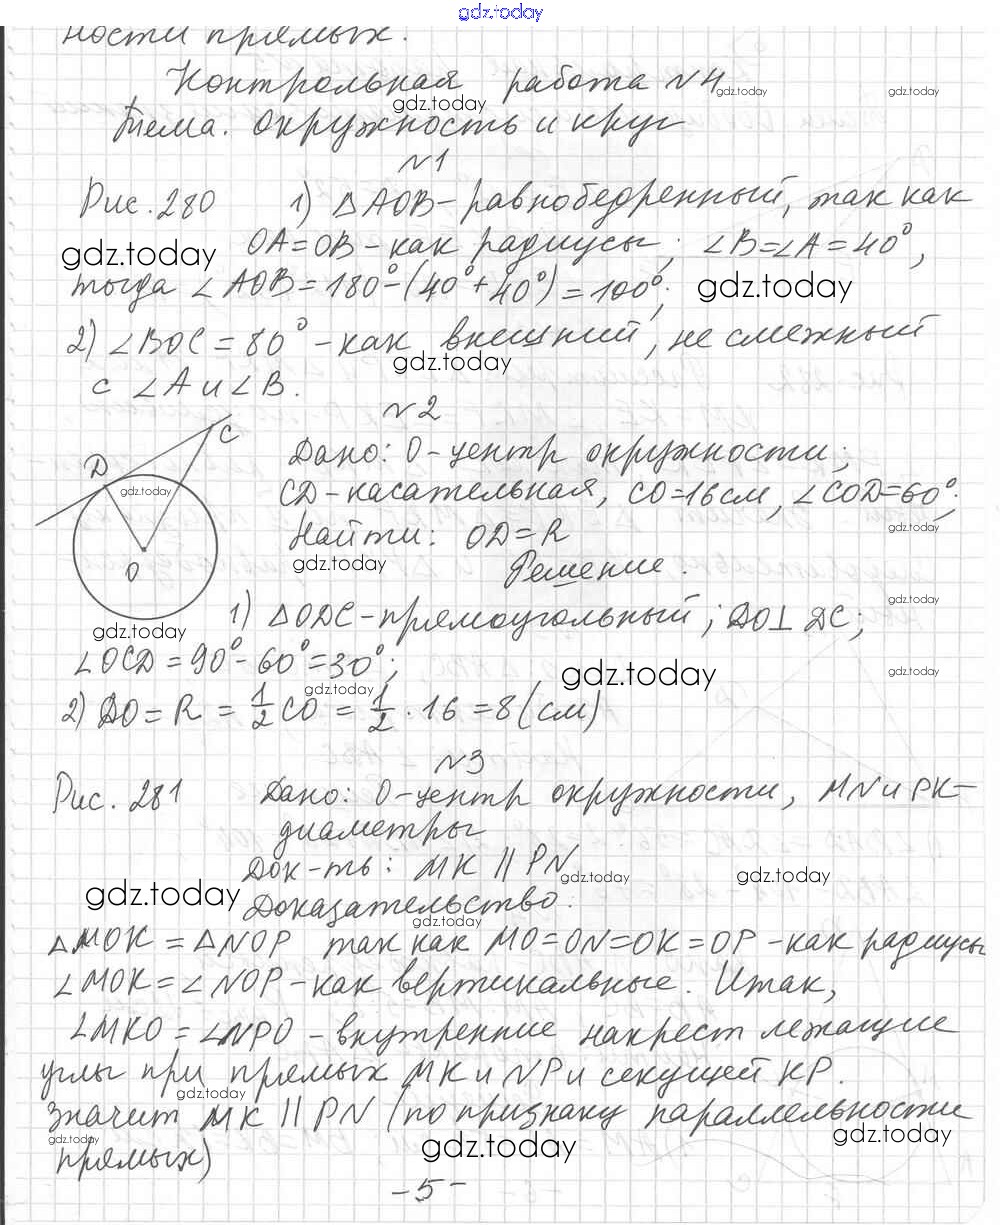 gdz.today
ности прямых.
Контрольная работа №4
gdz.today gdz.today gdz.today
Тема. Окружность и круг
№1
Рис. 280 1) △AOB - равнобедренный, так как
gdz.today OA = OB - как радиусы; ∠B = ∠A = 40°,
тогда ∠AOB = 180° - (40° + 40°) = 100°; gdz.today
2) ∠BOC = 80° - как внешний, не смежный
gdz.today
с ∠A и ∠B.
№2
C
Дано: O - центр окружности;
D
gdz.today CD - касательная, CO = 16 см, ∠COD = 60°;
gdz.today
Найти: OD = R
O gdz.today Решение.
gdz.today
1) △ODC - прямоугольный; DO ⊥ DC;
gdz.today
∠OCD = 90° - 60° = 30°;
gdz.today gdz.today gdz.today
2) DO = R = 1/2 CO = 1/2 · 16 = 8 (см)
№3
Рис. 281 Дано: O - центр окружности, MN и PK -
диаметры
Док-ть: MK || PN
gdz.today gdz.today gdz.today
Доказательство:
gdz.today
△MOK = △NOP так как MO = ON = OK = OP - как радиусы
∠MOK = ∠NOP - как вертикальные. Итак,
∠MKO = ∠NPO - внутренние накрест лежащие
углы при прямых MK и NP и секущей KP.
gdz.today
Значит MK || PN (по признаку параллельности
gdz.today gdz.today gdz.today
прямых)
- 5 -